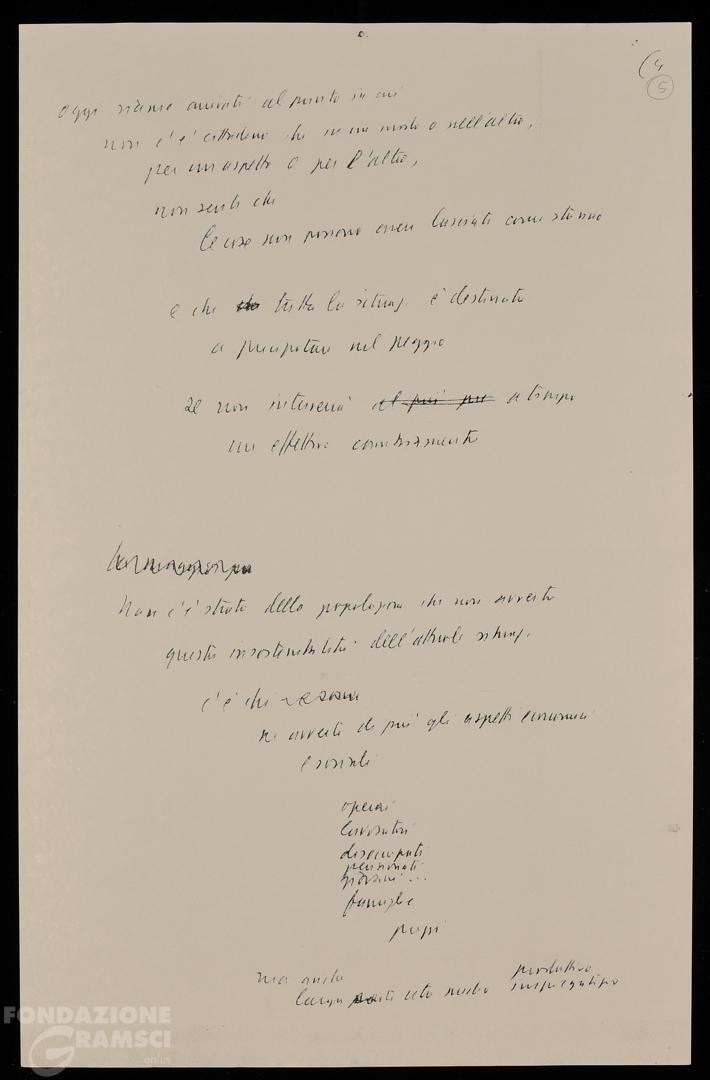 (4
5
Oggi siamo arrivati al punto in cui
non c'è cittadino che in un modo o nell'altro,
per un aspetto o per l'altro,
non senta che
le cose non possono essere lasciate come stanno
e che tutta la situaz. è destinata
a precipitare nel peggio
se non interverrà al più pre a tempo
un effettivo cambiamento
Non c'è strato della popolazione che non avverta
questa insostenibilità dell'attuale situaz.
c'è chi
ne avverte di più gli aspetti economici
e sociali
operai
lavoratori
disoccupati
pensionati
giovani ...
famiglie
ma anche
larga parte ceto medio produttivo
impiegatizio
FONDAZIONE
GRAMSCI
onlus